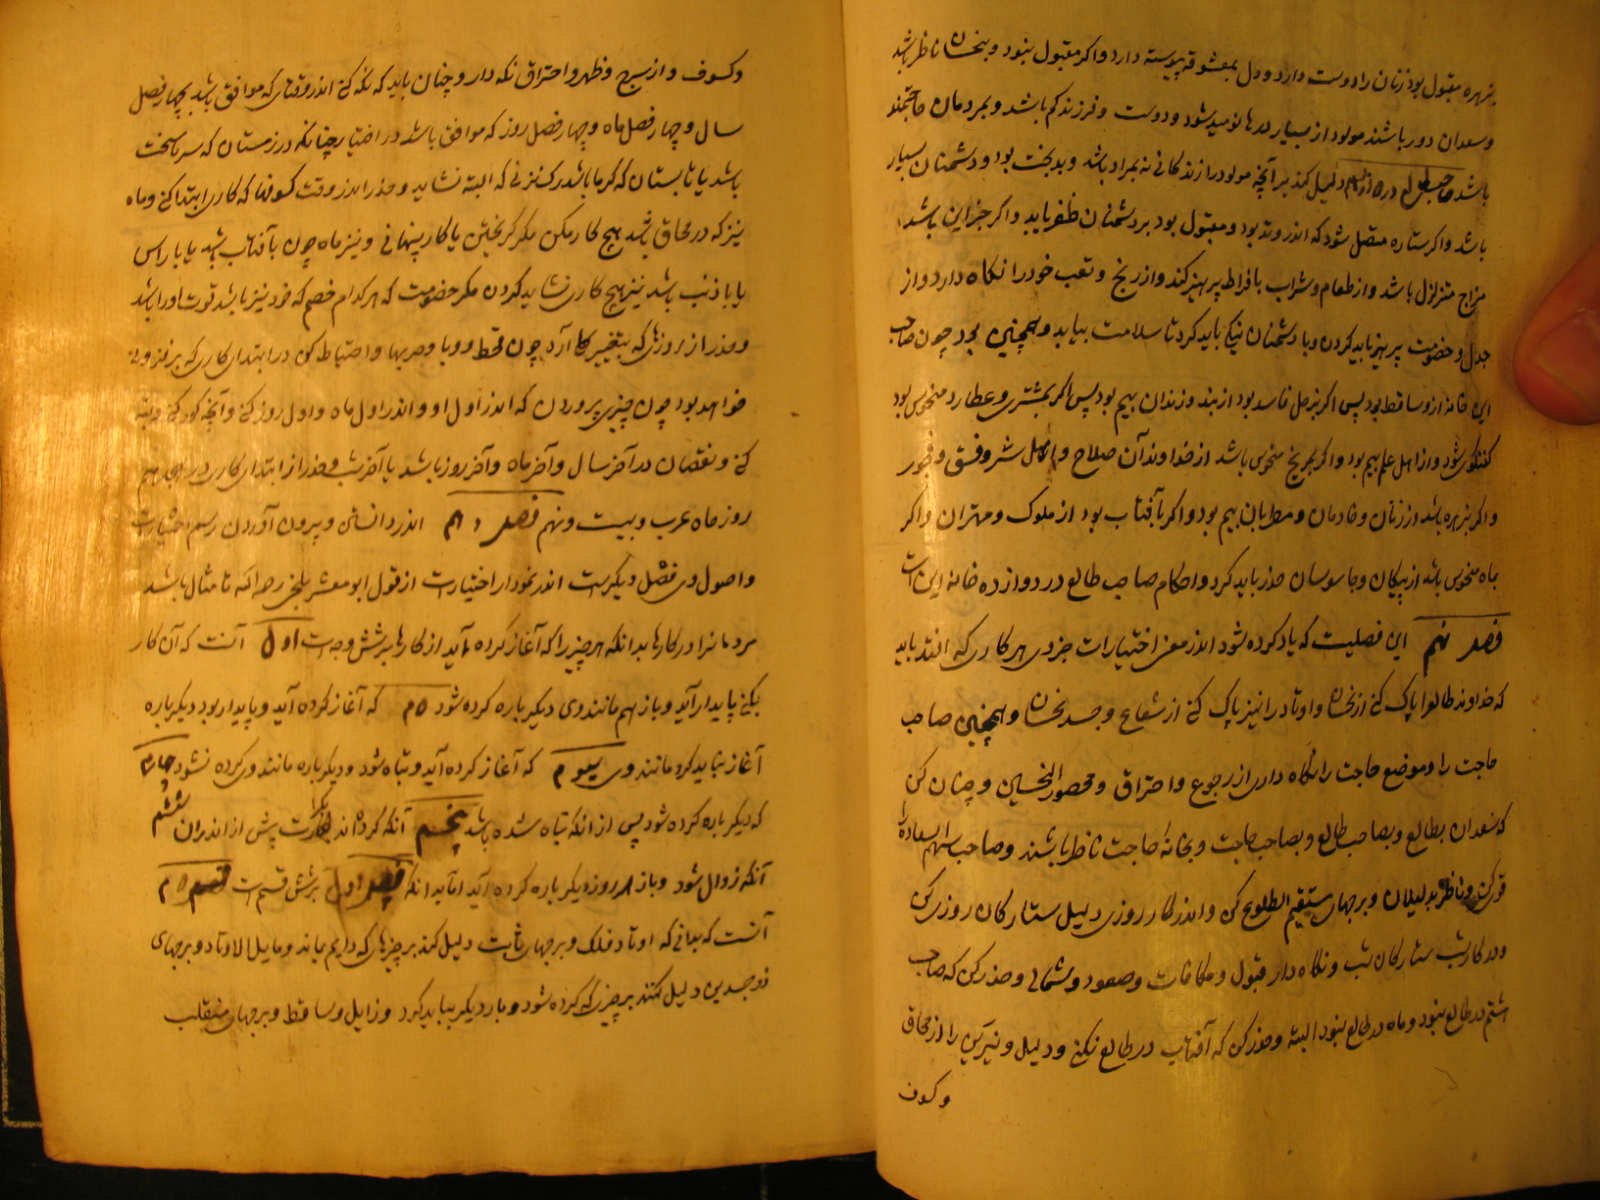 بزهره مقبول بود زنان را دوست دارد و دل بمعشوقه پیوسته دارد و اکر مقبول نبود و بنحسان ناظر باشد
و سعدان دور باشند مولود از بسیار دردها نومید شود و دوست و فرزند کم باشد و بمردمان حاجتمند
باشد صاحب طالع در دوازدهم دلیل کند بر آنچه مولود را زندکانی نه بمراد باشد و بدبخت بود و دشمنان بسیار
باشد و اکر ستاره متصل شود که اندر وتد بود و مقبول بود بر دشمنان ظفر یابد و اکر جز این باشد
مزاج متزلزل باشد و از طعام و شراب بافراط پرهیز کند و از رنج و تعب خود را نکاه دارد و از
جدل و خصومت پرهیز باید کردن و با دشمنان نیکی باید کرد تا سلامت بیابد و همچنین بود چون صاحب
این خانه از و ساقط بود پس اکر بزحل فاسد بود از بند و زندان بیم بود پس اکر بمشتری و عطارد منحوس بود
کفتکوی شود و از اهل علم بیم بود و اکر بمریخ منحوس باشد از خداوند آن صلاح و اهل شر و فسق و فجور
و اکر بزهره باشد از زنان و خادمان و مطربان بیم بود و اکر بآفتاب بود از ملوک و مهتران و اکر
بماه منحوس باشد از پیکان و جاسوسان حذر باید کرد و احکام صاحب طالع در دوازده خانه این است
فصل نهم این فصلیست که یاد کرده شود اندر معنی اختیارات جزوی هر کاری که افتد باید
که خداوند طالع را پاک کنی از نحسان و اوتاد را نیز پاک کنی از شعاع و جسد نحسان و همچنین صاحب
حاجت را و موضع حاجت را نکاه داری از رجوع و احتراق و محصور النحسین و چنان کن
که سعدان بطالع و بصاحب طالع و بصاحب حاجت و بخانه حاجت ناظر باشند و صاحب سهم السعاده را
قوی کن و ناظر بدلیلان و برجهای مستقیم الطلوع کن و اندر کار روزی دلیل ستارکان روزی کن
و در کار شب ستارکان شب و نکاه دار قبول و مکافات و صعود و شمالی و حذر کن که صاحب
هشتم در طالع نبود و ماه در طالع نبود البته و حذر کن که آفتاب در طالع نکنی و دلیل و نیرین را از محاق
و کسوف
و کسوف و از برج و ظهر و احتراق نکه دار و چنان باید که نکه کنی اندر وقتی که موافق باشد بچهار فصل
سال و چهار فصل ماه و چهار فصل روز که موافق باشد در اختیار چنانکه در زمستان که سرما سخت
باشد یا تابستان که کرما باشد رک نزنی که البته نشاید و حذر اندر وقت کسوفها که کاری ابتدا کنی و ماه
نیز که در محاق باشد هیچ کار مکن مکر کریختن یا کار پنهانی و نیز ماه چون بآفتاب باشد یا با راس
یا با ذنب باشد نیز هیچ کاری نشاید کردن مکر خصومت که هر کدام خصم که خرد نیز باشد قوت او را باشد
و حذر از روزها که بتغییر آرد چون قحط و وبا و حربها و احتیاط کن در ابتدا کاری که
خواهد بود چون چیزی پروردن که اندر اول او و اندر اول ماه و اول روز کنی و آنچه کودکی و
کنی و نقصان در آخر سال و آخر ماه و آخر روز باشد یا آخر شب و حذر از ابتدا کاری در
روز ماه عرب و بیست و نهم فصل دهم اندر دانستن و بیرون آوردن رسم اختیارات
و اصول وی فصل دیکرست اندر نمودار اختیارات از قول ابو معشر بلخی رحمه الله تا مثال باشد
مردمانرا در کارها بدانکه هر چیزی را که آغاز کرده آید از کارها بر شش وجه است اول آنست که آن کار
بکنی پایدار آید و باز هم مانند وی دیکر باره کرده شود دوم که آغاز کرده آید و پایدار بود دیکر باره
آغاز نباید کرد مانند وی سیوم که آغاز کرده آید و تباه شود و دیکر باره مانند وی کرده نشود چهارم
که دیکر باره کرده شود پس از آنکه تباه شده باشد پنجم آنکه کرده اند پیش از اندران ششم
آنکه زوال شود و باز از روز دیکر باره کرده آید اما بدانکه فصل اول بر شش قسم است قسم دوم
آنست که بدانی که اوتاد فلک و برجهای ثابت دلیل کند بر چیزهای که دایم بماند و مایل الاوتاد و برجهای
ذو جسدین دلیل کنند بر چیزی که کرده شود و بار دیکر بباید کرد و زایل و ساقط و برجهای منقلب